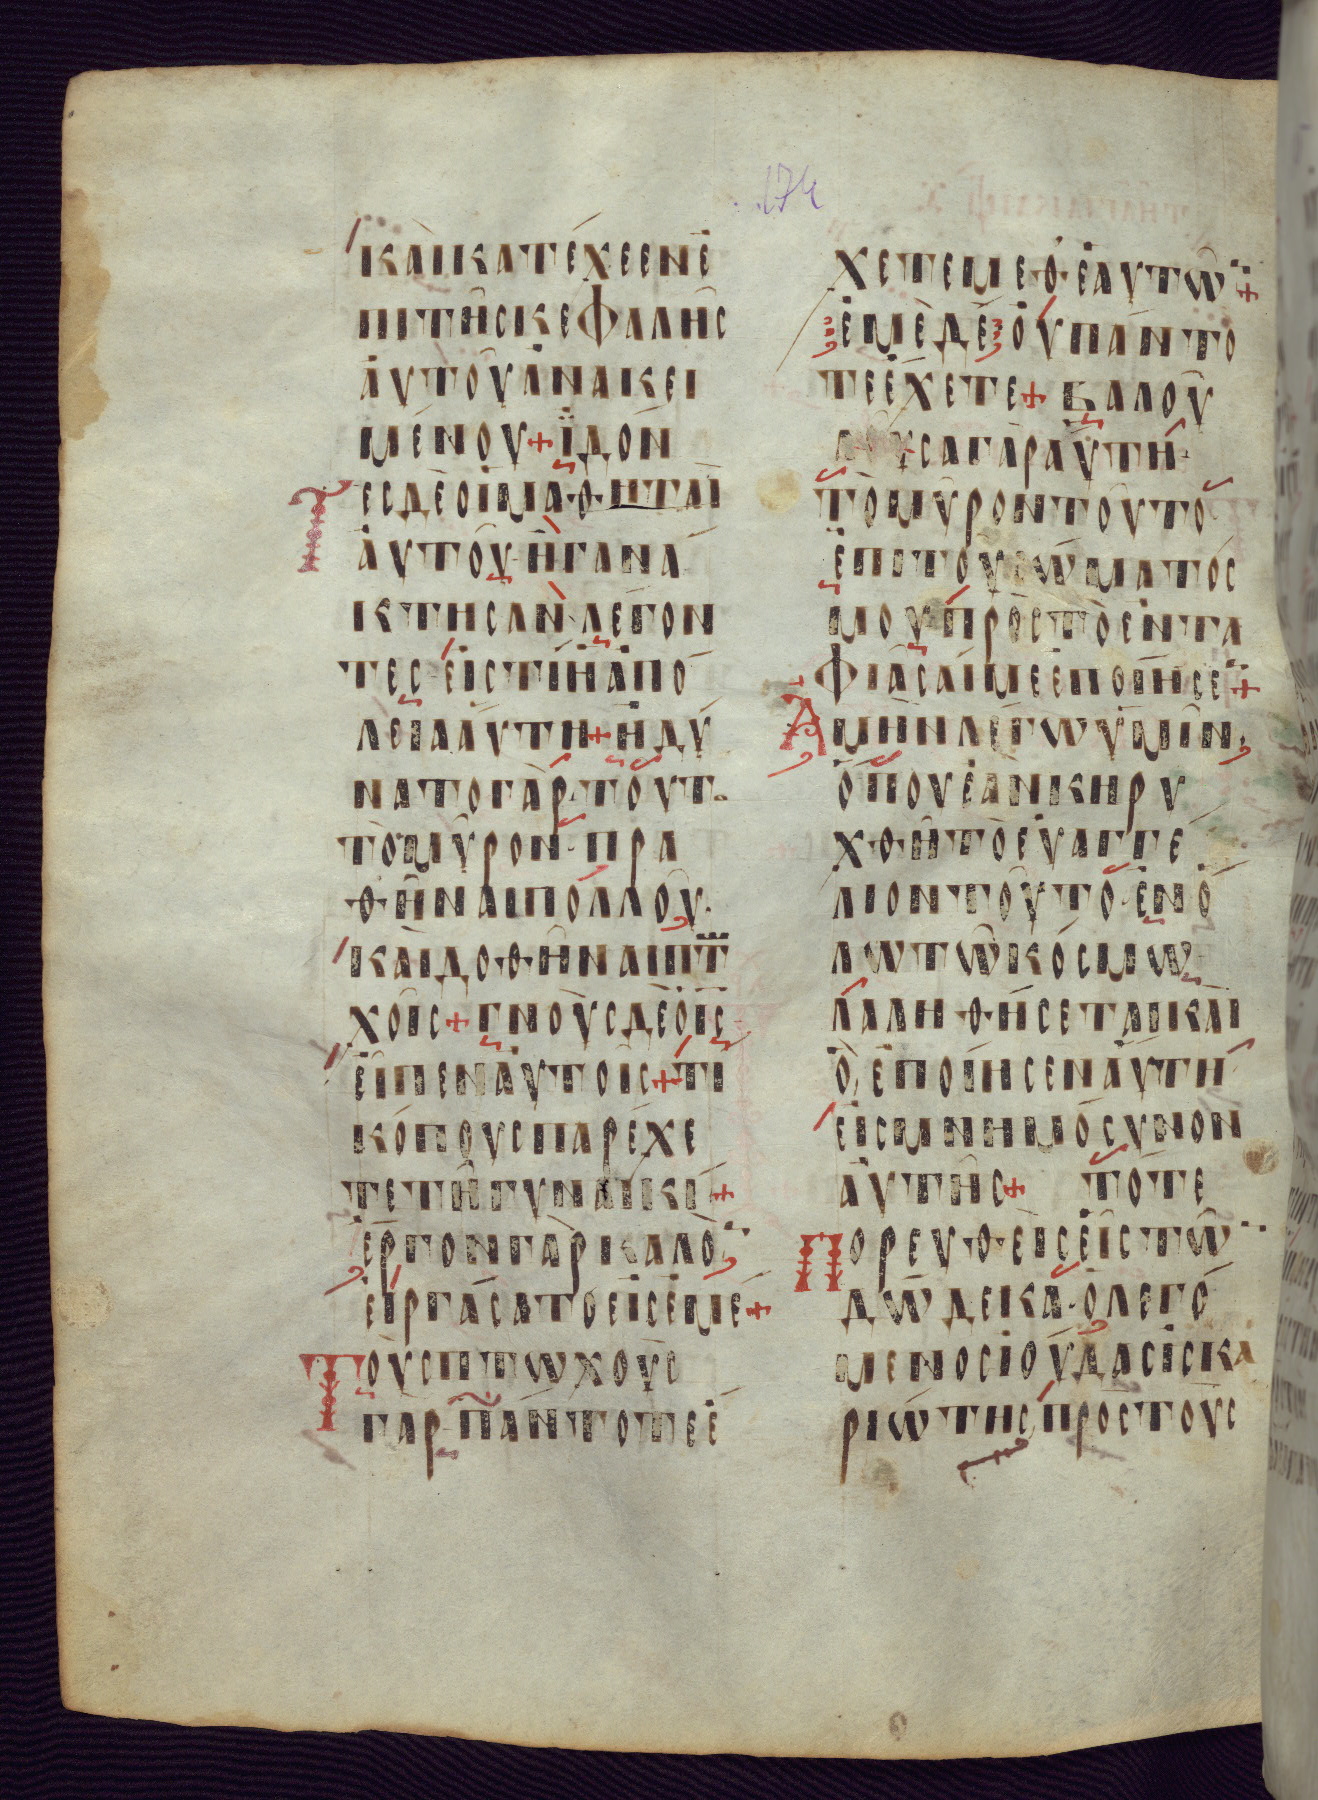 174
ΚΑῚΚΑΤΈΧΕΕΝἘ
ΠΙΤΗ͂ΣΚΕΦΑΛΗ͂Σ
ἈΥΤΟΥ͂ἈΝΑΚΕΙ
ΜΈΝΟΥ+ἸΔΌΝ
ΤΕΣΔΈΟΙΜΑΘΗΤΑῚ
ἈΥΤΟΥ͂·ἨΓΑΝΆ
ΚΤΗΣΑΝ·ΛΈΓΟΝ
ΤΕΣ·ἘΙΣΤΊἩἈΠΌ
ΛΕΙΑἈΥΤΗ+ἨΔΎ
ΝΑΤΟΓᾺΡ·ΤΟΥΤ
ΤῸΜΎΡΟΝ·ΠΡΑ
ΘΗ͂ΝΑΙΠΟΛΛΟΥ͂·
ΚΑῚΔΟΘΗ͂ΝΑΙΠΤ
ΧΟΙ͂Σ+ΓΝΟῪΣΔΈὉΙΣ
ἘΙΠΕΝἈΥΤΟΙ͂Σ+ΤΙ
ΚΌΠΟΥΣΠΑΡΈΧΕ
ΤΕΤΗ͂ΓΥΝΑΙΚΊ+
ἘΡΓΟΝΓᾺΡΚΑΛῸ
ἘΙΡΓΆΣΑΤΟἘΙΣἘΜΈ+
ΤΟῪΣΠΤΩΧΟῪΣ
ΓΑΡ·ΠΆΝΤΟΤΕΈ
ΧΕΤΕΜΕΘ᾽ἙΑΥΤΩ͂+
ἘΜῈΔΈΟΥΠΆΝΤΟ
ΤΕἘΧΕΤΕ+ΒΑΛΟΥ͂
ΛΟΥΣΑΓᾺΡἈΥΤΗ·
ΤῸΜΎΡΟΝΤΟΥΤΟ
ἘΠΙΤΟΥΣΏΜΑΤΟΣ
ΜΟΥΠΡῸΣΤῸἘΝΤΑ
ΦΙΆΣΑΙΜΕἘΠΟΊΗΣΕ+
ἈΜΗΝΛΈΓΩΥΜΙΝ,
ὍΠΟΥἘᾺΝΚΗΡΥ
ΧΘΗ͂ΤῸΕΥΑΓΓΈ
ΛΙΟΝΤΟΥ͂ΤΟ·ἘΝὉ
ΛΩΤΩ͂ΚΌΣΜΩ
ΛΑΛΗΘΉΣΕΤΑΙΚΑῚ
Ὃ,ἘΠΟΊΗΣΕΝἈΥΤΗ
ἘΙΣΜΝΗΜΌΣΥΝΟΝ
ἈΥΤΗ͂Σ+ ΤΌΤΕ
ΠΟΡΕΥΘΕΙΣἘΙΣΤΩ͂
ΔΏΔΕΚΑ·ὉΛΕΓΌ
ΜΕΝΟΣΙΟΎΔΑΣΙΣΚΑ
ΡΙΏΤΗΣ,ΠΡΟΣΤΟῪΣ